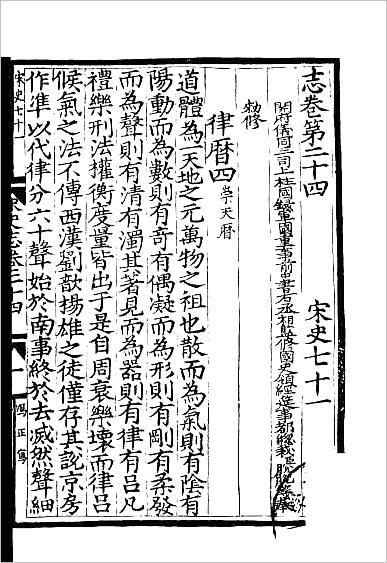 志卷第二十四 宋史七十一
開府儀同三司上柱國錄軍國重事前中書右丞相監修國史領經筵事都總裁臣脫脫等奉
敕修
律曆四 崇天曆
道體為一天地之元萬物之祖也散而為氣則有陰有
陽動而為數則有奇有偶凝而為形則有剛有柔發
而為聲則有清有濁其著見而為器則有律有呂凡
禮樂刑法權衡度量皆出于是自周衰樂壞而律呂
候氣之法不傳西漢劉歆揚雄之徒僅存其說京房
作準以代律分六十聲始於南事終於去滅然聲細
宋史七十
史志卷二十四
一
馮正寫